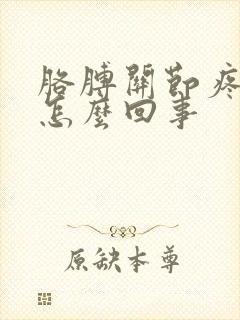 胳膊關節疼
怎麼回事
原缺本尊